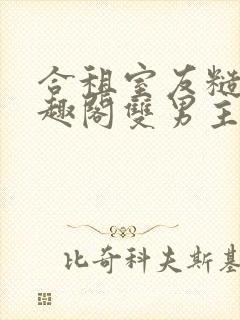 合租室友糙
趣閣雙男主
比奇科夫斯基